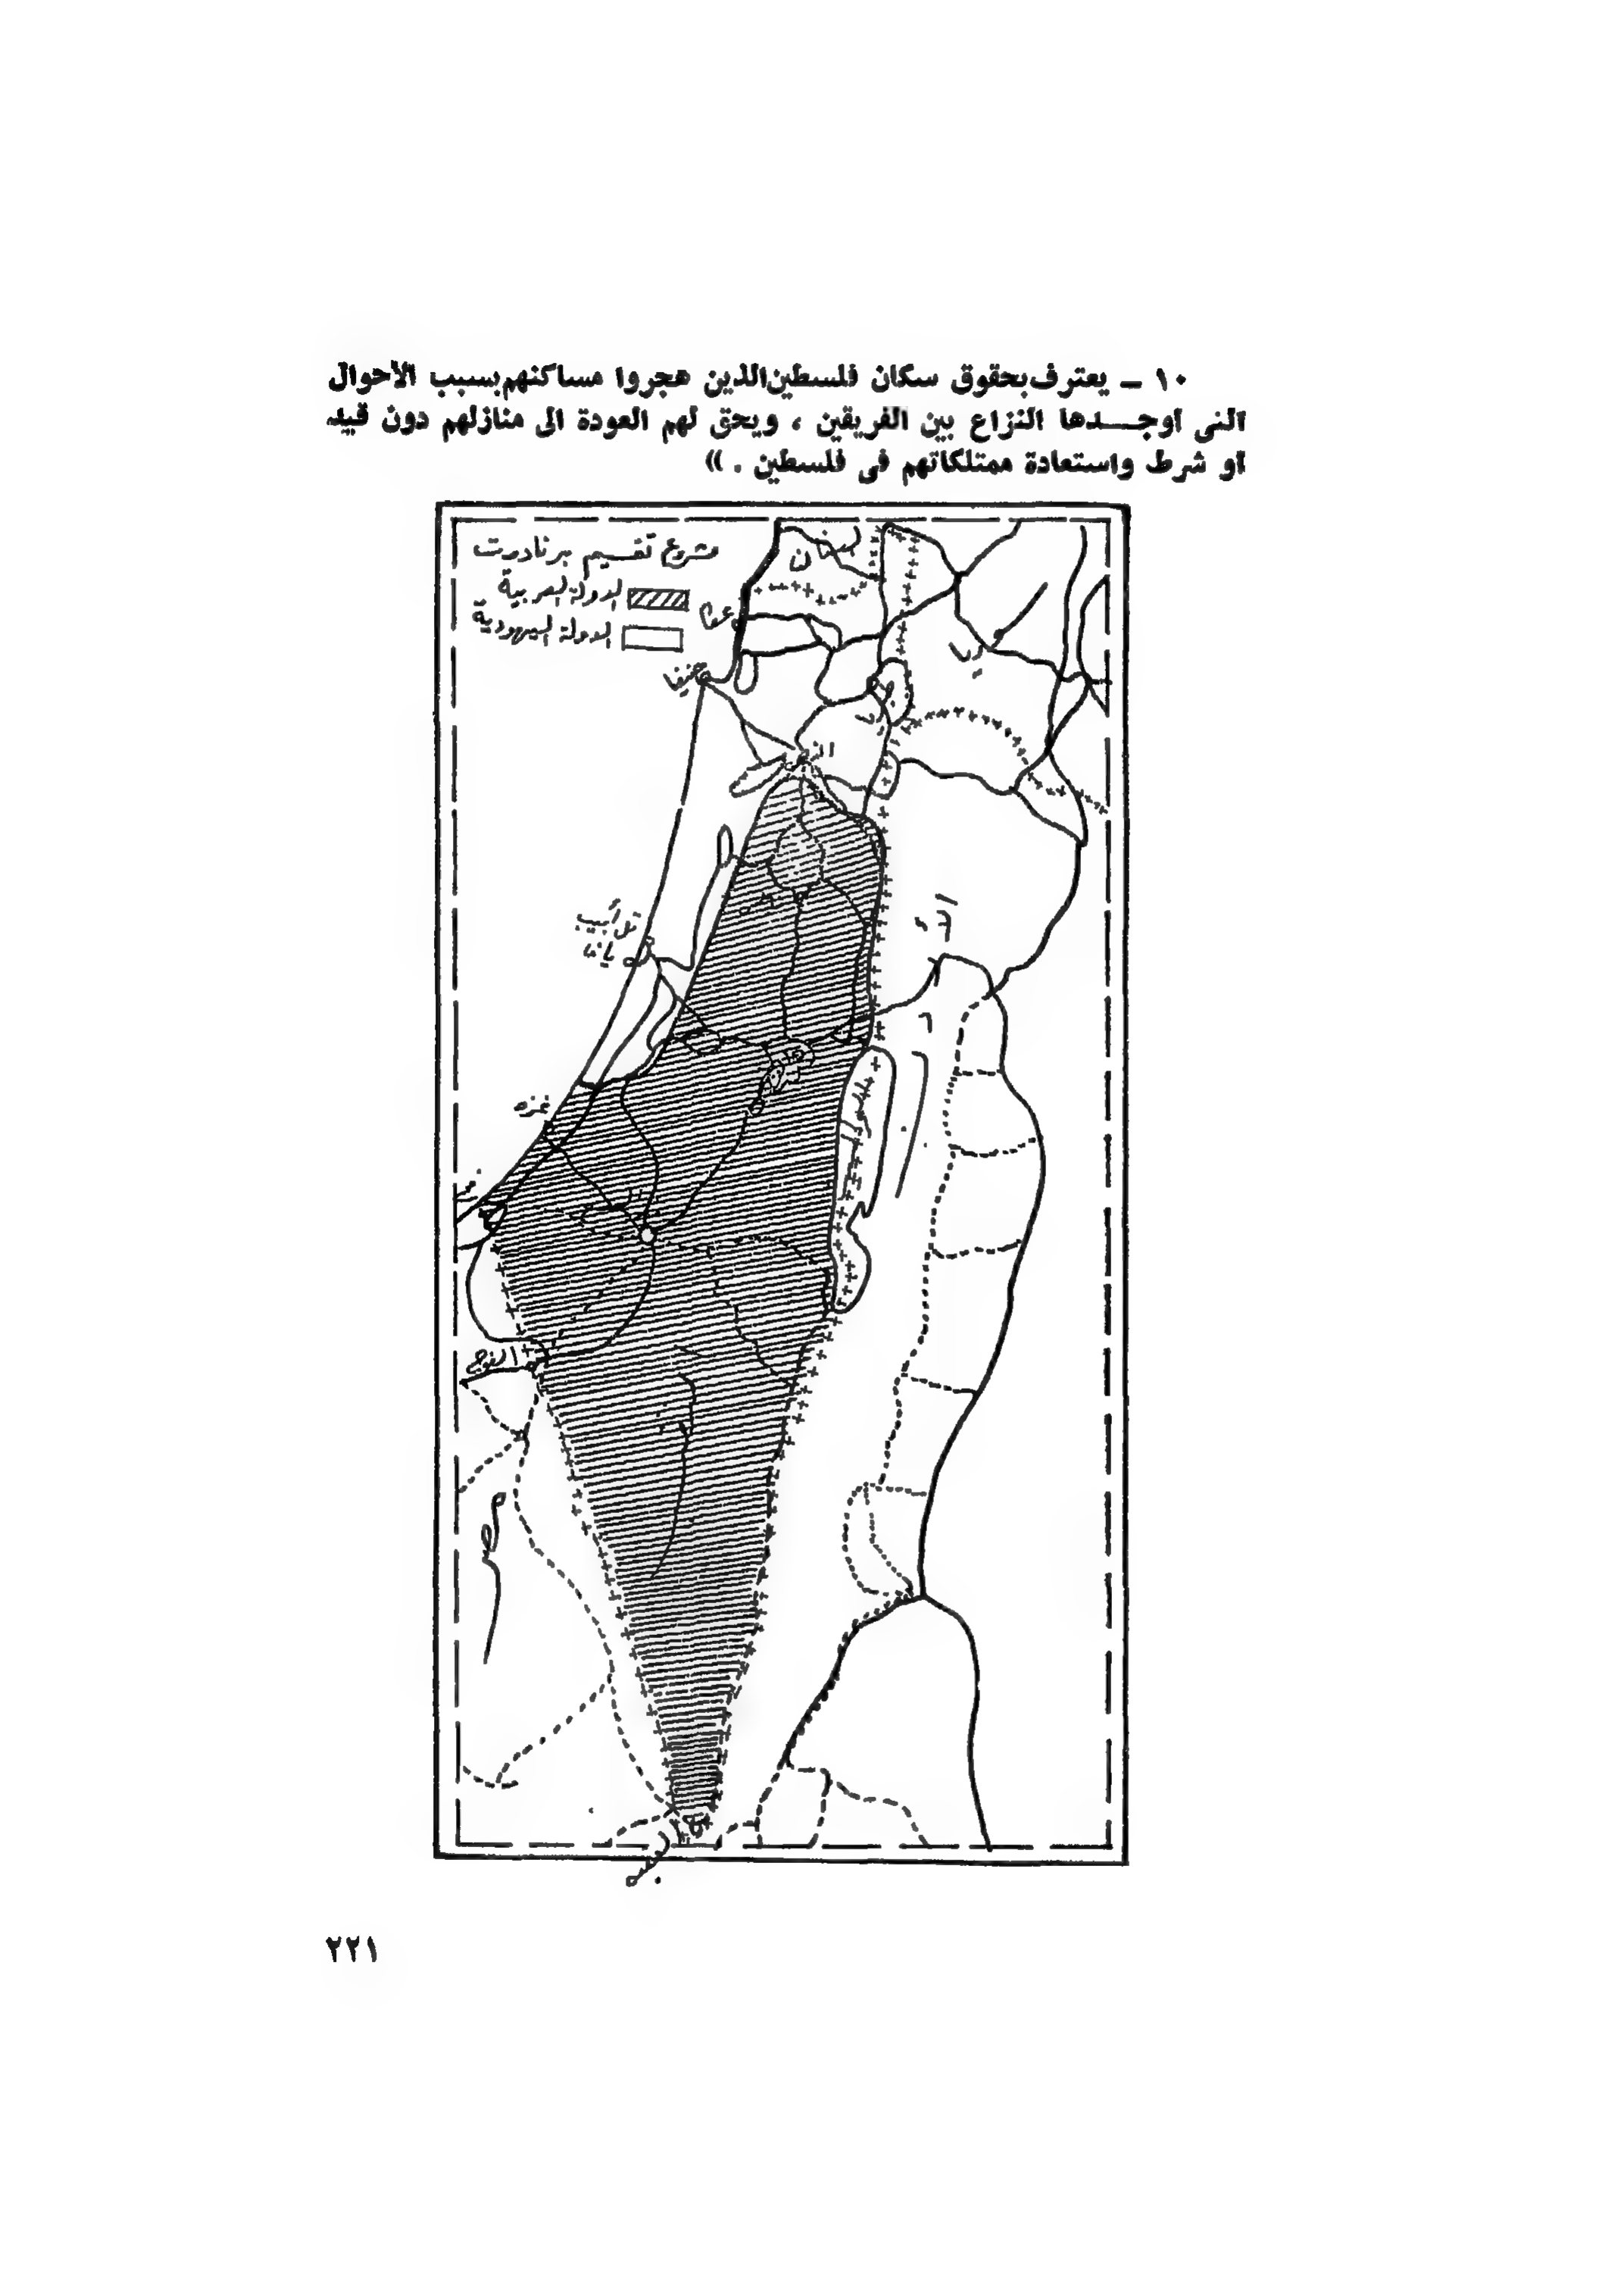 ١٠ ـ يعترف بحقوق سكان فلسطين الذين هجروا مساكنهم بسبب الاحوال
التى اوجـــدها النزاع بين الفريقين ، ويحق لهم العودة الى منازلهم دون قيد
او شرط واستعادة ممتلكاتهم فى فلسطين . ))
مشروع تقسيم برنادوت
الدولة العربية
الدولة اليهودية
لبنان
عكا
حيفا
تل أبيب
يافا
غزه
العوجه
٢٢١